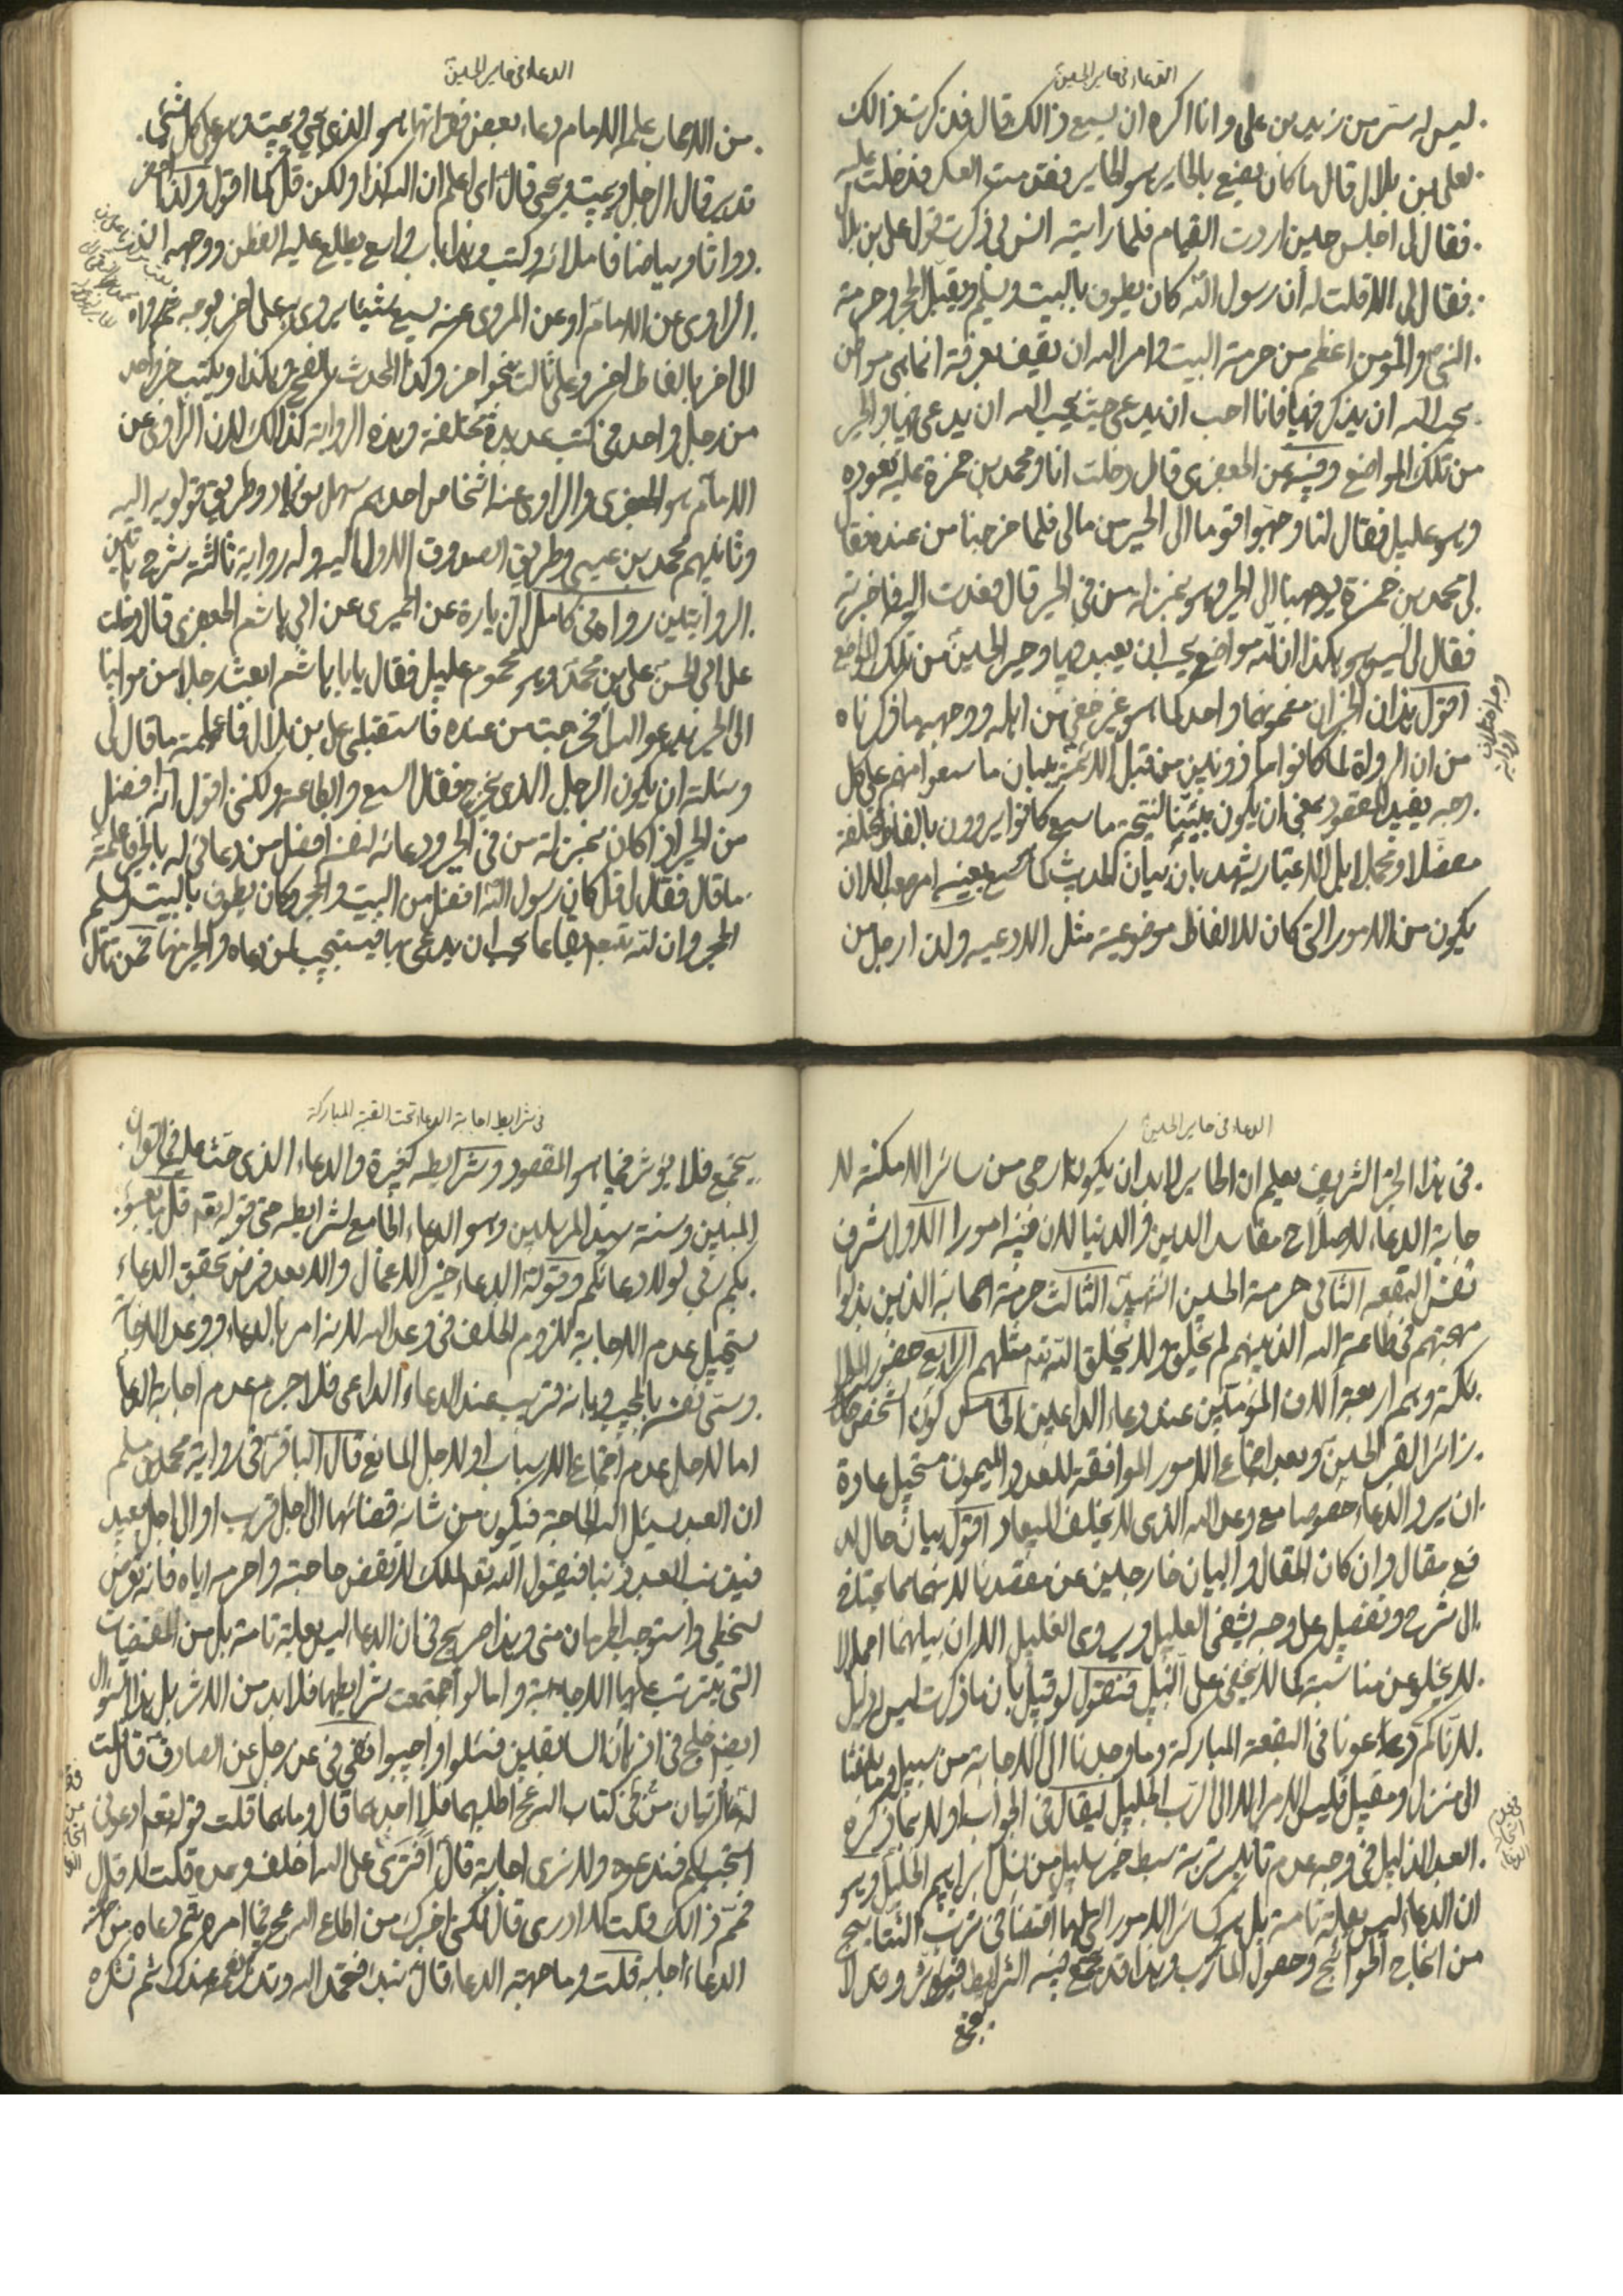 الدعاء في حاير الحسين
ليس له ستر من زيد بن علي وانا اكره ان يسمع ذالك قال فذكرت ذالك
لعلي بن بلال فقال ما كان يصنع بالحاير هو الحاير فقدمت العسكر فدخلت عليه
فقال لي اجلس حين اردت القيام فلما رايته انس بي ذكرت قول علي بن بلال
فقال لي الا قلت له ان رسول الله كان يطوف بالبيت ويقبل الحجر وحرمة
النبي والمؤمن اعظم من حرمة البيت وامر الله ان يقف بعرفة انما هي مواطن
يحب الله ان يذكر فيها فانا احب ان يدعى حيث يحب الله ان يدعى فيها والحير
من تلك المواضع وفيه عن الجعفري قال دخلت انا ومحمد بن حمزة عليه نعوده
وهو عليل فقال لنا وجهوا قوما الى الحير من مالي فلما خرجنا من عنده فقال
لي محمد بن حمزة يوجهنا الى الحير وهو بمنزلة من في الحير قال فعدت اليه فاخبرته
فقال لي ليس هو هكذا ان لله مواضع يحب ان يعبد فيها وحير الحسين من تلك المواضع
اقول هذان الخبران مضمونهما واحد كما هو غير خفي من اهله ووجهه ما ذكرناه
من ان الرواة لما كانوا ماذونين من قبل الائمة ببيان ما سمعوا منهم على كل
وجه يفيد المقصود بمعنى ان يكون مبينا لنتيجة ما سمع كانوا يروون بالفاظ مختلفة
مفصلا ومجملا بل الاعتبار يشهد بان بيان الحديث كما سمع بعينه امر صعب الا ان
يكون من الامور التي كان للالفاظ موضوعية مثل الادعية ولذا رجل من
الدعاء في حاير الحسين
من الاصحاب علمه الامام دعاء بعض فقراتها هو الذي يحيي ويميت وهو على كل شيء
قدير قال الرجل ويميت ويحيي قال اي اعلم ان الله كذا ولكن قل كما اقول ولذا
دواتا وبياضا فاملائه وكتب وهذا باب واسع يطلع عليه الفطن ووجهه
الراوي عن الامام او عن المروي عنه يسمع شيئا يرويه على اخر بوجه
الى اخر بالفاظ اخر وعلى ثالث بنحو اخر وكذا المحدث وهكذا ويكتب خبر واحد
من رجل واحد في كتب عديدة مختلفة وهذه الرواية كذالك لان الراوي عن
الامام هو الجعفري والراوي عنه اشخاص احدهم سهل بن زياد وطريق قولويه اليه
وثانيهم محمد بن عيسى وطريق الصدوق الاول اليه وله رواية ثالثة شرح هاتين
الروايتين رواه في كامل الزيارة عن الحميري عن ابي هاشم الجعفري قال دخلت
على ابي الحسن علي بن محمد وهو محموم عليل فقال يا ابا هاشم ابعث رجلا من موالينا
الى الحير يدعو الله لي فخرجت من عنده فاستقبلني علي بن بلال فاعلمته ما قال لي
وسئلته ان يكون الرجل الذي يخرج فقال السمع والطاعة ولكني اقول انه افضل
من الحير اذا كان بمنزلة من في الحير ودعائه لنفسه افضل من دعائي له بالحير فاعلمته
ما قال فقال لي قل كان رسول الله افضل من البيت والحجر وكان يطوف بالبيت ويستلم
الحجر وان لله تعالى بقاعا يحب ان يدعى بها فيستجيب لمن دعاه والحير منها فمن تامل
الدعاء في حاير الحسين
في هذا الخبر الشريف يعلم ان الحاير لا بد ان يكون ارجى من سائر الامكنة لا
جابة الدعاء لاصلاح مفاسد الدين والدنيا لان فيه امورا الاول شرف
نفس البقعه الثاني حرمة الحسين الشهيد الثالث حرمة اصحابه الذين بذلوا
مهجتهم في طاعة الله الذينهم لم يخلق ولا يخلق الله تعالى مثلهم الرابع حضور الملا
ئكة وهم اربعة آلاف المؤمنين عند دعاء الداعين الخامس كون الشخص
زائر القبر الحسين وبعد اجتماع الامور الموافقة للعدد الميمون مستحيل عادة
ان يرد الدعاء خصوصا مع وعد الله الذي لا يخلف الميعاد اقول بيان حال الد
فع مقال وان كان المقال والبيان خارجين عن مقصدنا لانهما مما يحتاج
الى شرح وتفصيل على وجه يشفي العليل ويروي الغليل الا ان بيانهما اجمالا
لا يخلو عن مناسبة كما لا يخفى على النبيل فنقول لو قيل بان ما ذكرت ليس بدليل
لانا كم دعاء دعونا في البقعة المباركة وما وجدنا الى الاجابة من سبيل وما بلغنا
الى منزل ومقيل فليس الامر الا الى الرب الجليل ليقال في الجواب اولا بما ذكره
العبد الذليل في وجه عدم تاثير تربة سبط خير سليل من نسل ابراهيم الخليل وهو
ان الدعاء ليس بعلة تامة بل هو كسائر الامور التي لها اقتضاء في ترتب النتايج
من انجاح الحوائج وحصول المآرب وهذا قد يجتمع فيه الشرايط فيؤثر وقد لا
يجتمع
في شرايط اجابة الدعاء تحت القبة المباركة
يجتمع فلا يؤثر فيما هو المقصود وشرايطه كثيرة والدعاء الذي حث عليه في القرآن
المبين وسنة سيد المرسلين هو الدعاء الجامع لشرايطه حتى قوله تعالى قل ما يعبؤ
بكم ربي لولا دعائكم وقوله الدعاء خير الاعمال والا بعد فرض تحقق الدعاء
يستحيل عدم الاجابة للزوم الخلف في وعد الله لانه امر بالدعاء ووعد الاجابة
وسمى نفسه بالمجيب وبانه قريب عند الدعاء الداعي فلا جرم عدم اجابة الدعاء
اما لاجل عدم اجتماع الاسباب او لاجل المانع قال الباقر في رواية محمد بن مسلم
ان العبد يسئل الله الحاجة فيكون من شانه قضائها الى اجل قريب او الى اجل بعيد
فيذنب العبد ذنبا فيقول الله تعالى للملك لا تقض حاجته واحرمه اياه فانه تعرض
لسخطي واستوجب الحرمان مني وهذا صريح في ان الدعاء ليس بعلة تامة بل من المقتضيات
التي يترتب عليها الاجابة واما لو اجتمعت شرايطها فلا بد من الاثر بل هذا السؤال
ايضا خلج في اذهان السابقين فسئلوا واجيبوا ففي عن رجل عن الصادق قال قلت
له آيتان في كتاب الله عز وجل اطلبهما فلا اجدهما قال وما هما قلت قوله تعالى ادعوني
استجب لكم فندعوه ولا نرى اجابة قال افترى على الله اخلف وعده قلت لا قال
فمم ذالك قلت لا ادري قال لكني اخبرك من اطاع الله عز وجل فيما امره ثم دعاه من جهة
الدعاء اجابه قلت وما جهة الدعاء قال تبدء فتحمد الله وتذكر نعمه عندك ثم تشكره